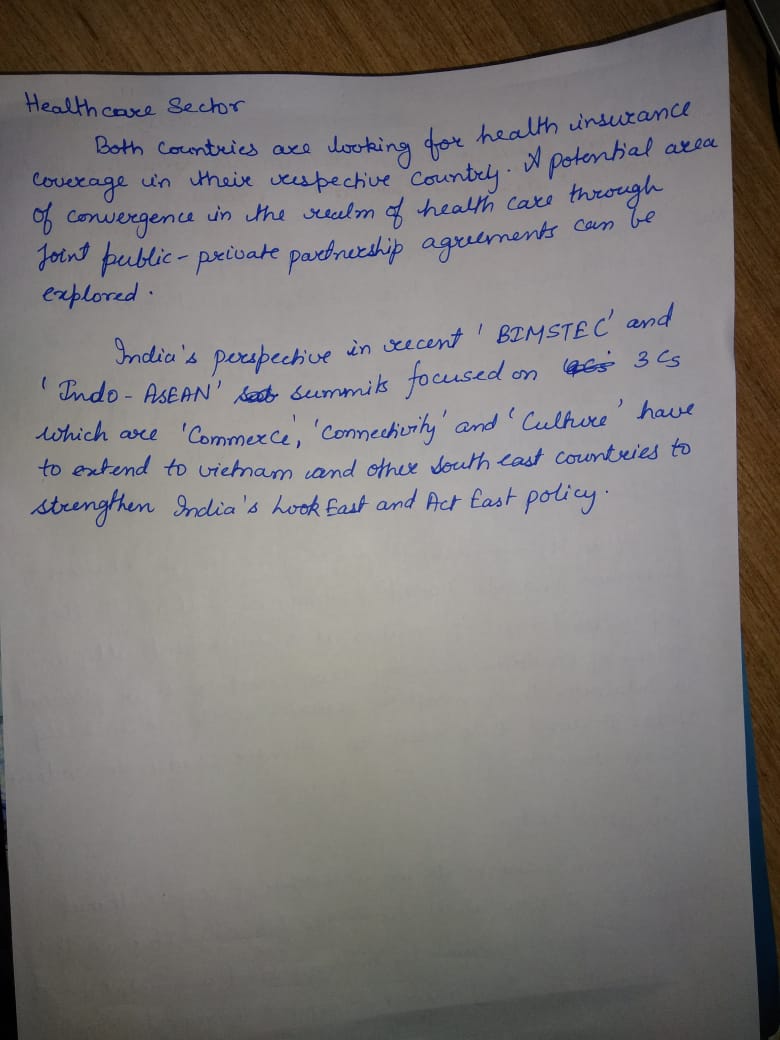 Healthcare Sector
Both Countries are looking for health insurance
coverage in their respective Country. A potential area
of convergence in the realm of health care through
Joint public - private partnership agreements can be
explored.
India's perspective in recent 'BIMSTEC' and
'Indo - ASEAN' summits focused on 3 Cs
which are 'Commerce', 'Connectivity' and 'Culture' have
to extend to vietnam and other South east countries to
strengthen India's Look East and Act East policy.